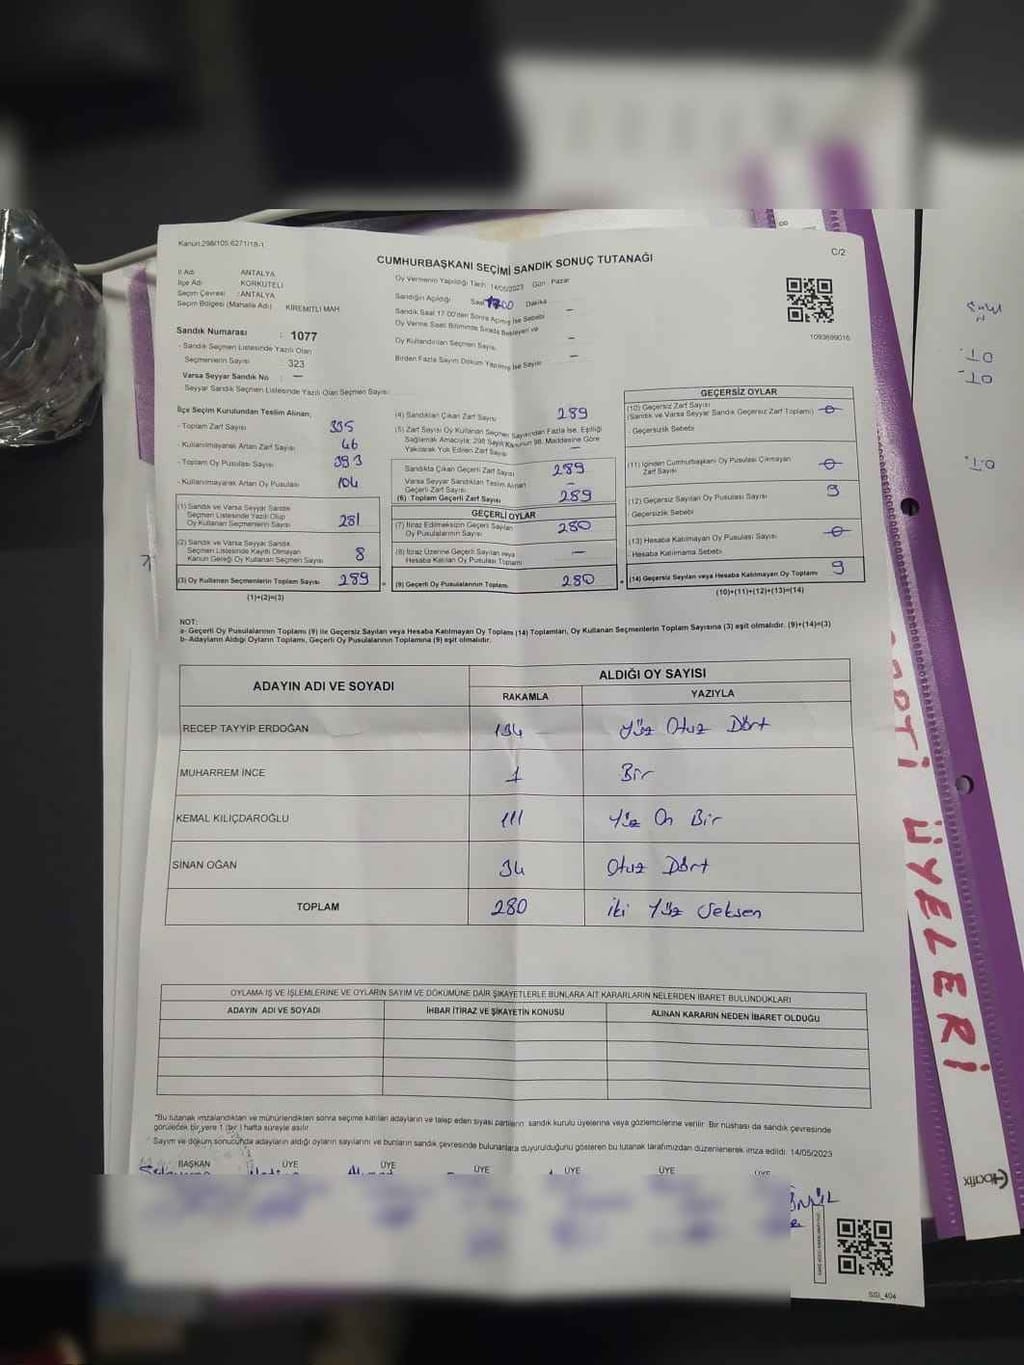 Kanun:298/105.6271/18-1
C/2
CUMHURBAŞKANI SEÇİMİ SANDIK SONUÇ TUTANAĞI
İl Adı : ANTALYA
İlçe Adı : KORKUTELİ
Seçim Çevresi : ANTALYA
Seçim Bölgesi (Mahalle Adı) : KİREMİTLİ MAH
Oy Vermenin Yapıldığı Tarih 14/05/2023 Gün : Pazar
Sandığın Açıldığı Saat 17:00 Dakika —
Sandık Saat 17:00'den Sonra Açılmış İse Sebebi —
Oy Verme Saati Bitiminde Sırada Bekleyen ve
Oy Kullandırılan Seçmen Sayısı —
Birden Fazla Sayım Döküm Yapılmış İse Sayısı —
1093699016
Sandık Numarası : 1077
- Sandık Seçmen Listesinde Yazılı Olan
Seçmenlerin Sayısı 323
Varsa Seyyar Sandık No : —
Seyyar Sandık Seçmen Listesinde Yazılı Olan Seçmen Sayısı :
İlçe Seçim Kurulundan Teslim Alınan;
- Toplam Zarf Sayısı 335
- Kullanılmayarak Artan Zarf Sayısı 46
- Toplam Oy Pusulası Sayısı 393
- Kullanılmayarak Artan Oy Pusulası 104
(1) Sandık ve Varsa Seyyar Sandık
Seçmen Listesinde Yazılı Olup
Oy Kullanan Seçmenlerin Sayısı 281
(2) Sandık ve Varsa Seyyar Sandık
Seçmen Listesinde Kayıtlı Olmayan
Kanun Gereği Oy Kullanan Seçmen Sayısı 8
(3) Oy Kullanan Seçmenlerin Toplam Sayısı 289
(1)+(2)=(3)
(4) Sandıktan Çıkan Zarf Sayısı 289
(5) Zarf Sayısı Oy Kullanan Seçmen Sayısından Fazla İse, Eşitliği
Sağlamak Amacıyla; 298 Sayılı Kanunun 98. Maddesine Göre
Yakılarak Yok Edilen Zarf Sayısı —
Sandıkta Çıkan Geçerli Zarf Sayısı 289
Varsa Seyyar Sandıktan Teslim Alınan
Geçerli Zarf Sayısı —
(6) Toplam Geçerli Zarf Sayısı 289
GEÇERLİ OYLAR
(7) İtiraz Edilmeksizin Geçerli Sayılan
Oy Pusulalarının Sayısı 280
(8) İtiraz Üzerine Geçerli Sayılan veya
Hesaba Katılan Oy Pusulası Toplamı —
(9) Geçerli Oy Pusulalarının Toplamı 280
GEÇERSİZ OYLAR
(10) Geçersiz Zarf Sayısı
(Sandık ve Varsa Seyyar Sandık Geçersiz Zarf Toplamı) 0
- Geçersizlik Sebebi
(11) İçinden Cumhurbaşkanı Oy Pusulası Çıkmayan
Zarf Sayısı 0
(12) Geçersiz Sayılan Oy Pusulası Sayısı 9
- Geçersizlik Sebebi
(13) Hesaba Katılmayan Oy Pusulası Sayısı 0
- Hesaba Katılmama Sebebi
(14) Geçersiz Sayılan veya Hesaba Katılmayan Oy Toplamı 9
(10)+(11)+(12)+(13)=(14)
NOT:
a- Geçerli Oy Pusulalarının Toplamı (9) ile Geçersiz Sayılan veya Hesaba Katılmayan Oy Toplamı (14) Toplamları, Oy Kullanan Seçmenlerin Toplam Sayısına (3) eşit olmalıdır. (9)+(14)=(3)
b- Adayların Aldığı Oyların Toplamı, Geçerli Oy Pusulalarının Toplamına (9) eşit olmalıdır.
ADAYIN ADI VE SOYADI
ALDIĞI OY SAYISI
RAKAMLA YAZIYLA
RECEP TAYYİP ERDOĞAN 134 Yüz Otuz Dört
MUHARREM İNCE 1 Bir
KEMAL KILIÇDAROĞLU 111 Yüz On Bir
SİNAN OĞAN 34 Otuz Dört
TOPLAM 280 İki Yüz Seksen
OYLAMA İŞ VE İŞLEMLERİNE VE OYLARIN SAYIM VE DÖKÜMÜNE DAİR ŞİKAYETLERLE BUNLARA AİT KARARLARIN NELERDEN İBARET BULUNDUKLARI
ADAYIN ADI VE SOYADI İHBAR İTİRAZ VE ŞİKAYETİN KONUSU ALINAN KARARIN NEDEN İBARET OLDUĞU
*Bu tutanak imzalandıktan ve mühürlendikten sonra seçime katılan adayların ve talep eden siyasi partilerin sandık kurulu üyelerine veya gözlemcilerine verilir. Bir nüshası da sandık çevresinde
görülecek bir yere 1 (bir) hafta süreyle asılır.
Sayım ve döküm sonucunda adayların aldığı oyların sayılarını ve bunların sandık çevresinde bulunanlara duyurulduğunu gösteren bu tutanak tarafımızdan düzenlenerek imza edildi. 14/05/2023
BAŞKAN ÜYE ÜYE ÜYE ÜYE ÜYE ÜYE
SSI_404
ÜYELERİ